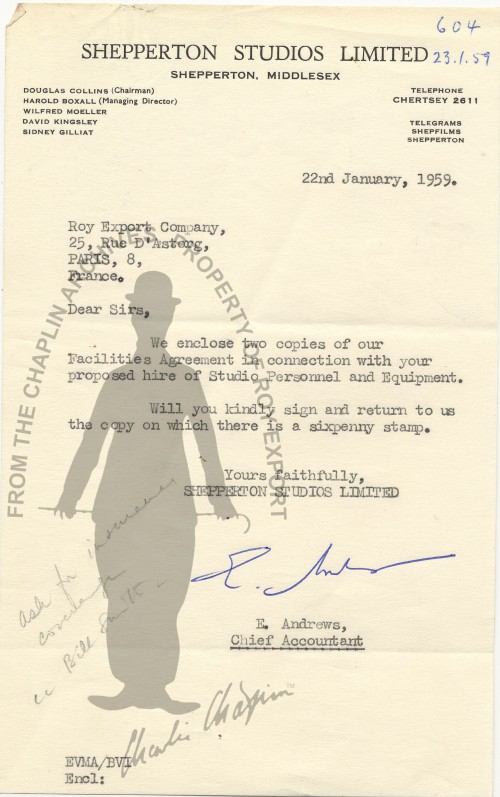 604
23.1.59
SHEPPERTON STUDIOS LIMITED
SHEPPERTON, MIDDLESEX
DOUGLAS COLLINS (Chairman)
HAROLD BOXALL (Managing Director)
WILFRED MOELLER
DAVID KINGSLEY
SIDNEY GILLIAT
TELEPHONE
CHERTSEY 2611
TELEGRAMS
SHEPFILMS
SHEPPERTON
22nd January, 1959.
Roy Export Company,
25, Rue D'Astorg,
PARIS, 8,
France.
Dear Sirs,
We enclose two copies of our
Facilities Agreement in connection with your
proposed hire of Studio Personnel and Equipment.
Will you kindly sign and return to us
the copy on which there is a sixpenny stamp.
Yours faithfully,
SHEPPERTON STUDIOS LIMITED
E. Andrews
E. Andrews,
Chief Accountant
ask for insurance
coverage
cc Bill Smith
EVMA/BVI
Encl:
FROM THE CHAPLIN ARCHIVES PROPERTY OF ROY EXPORT
Charlie Chaplin